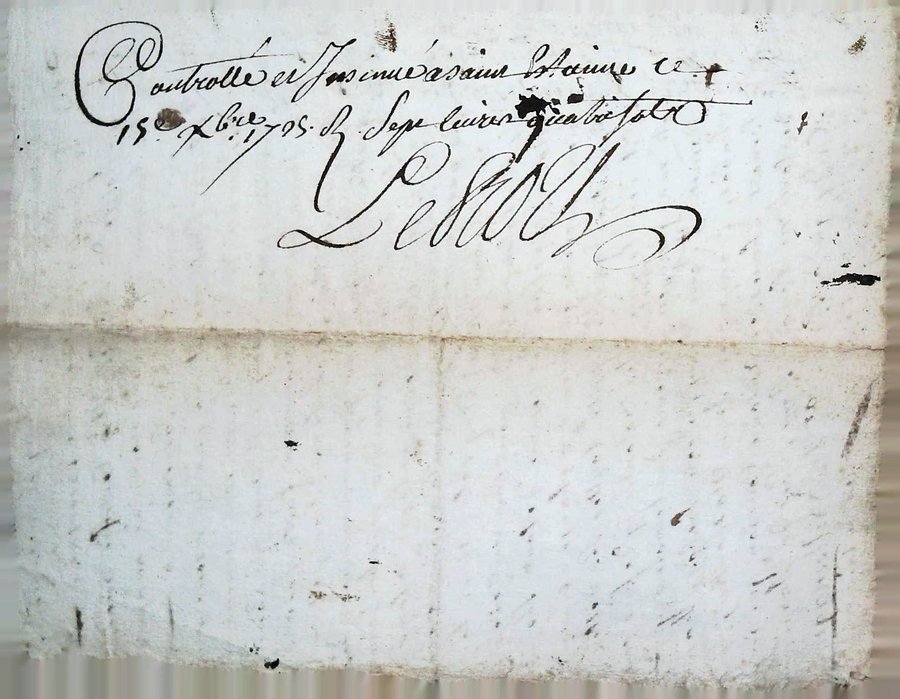 Controllé et Insinué a saint ce
15e xbre 1725. R Sept livres quatre sols